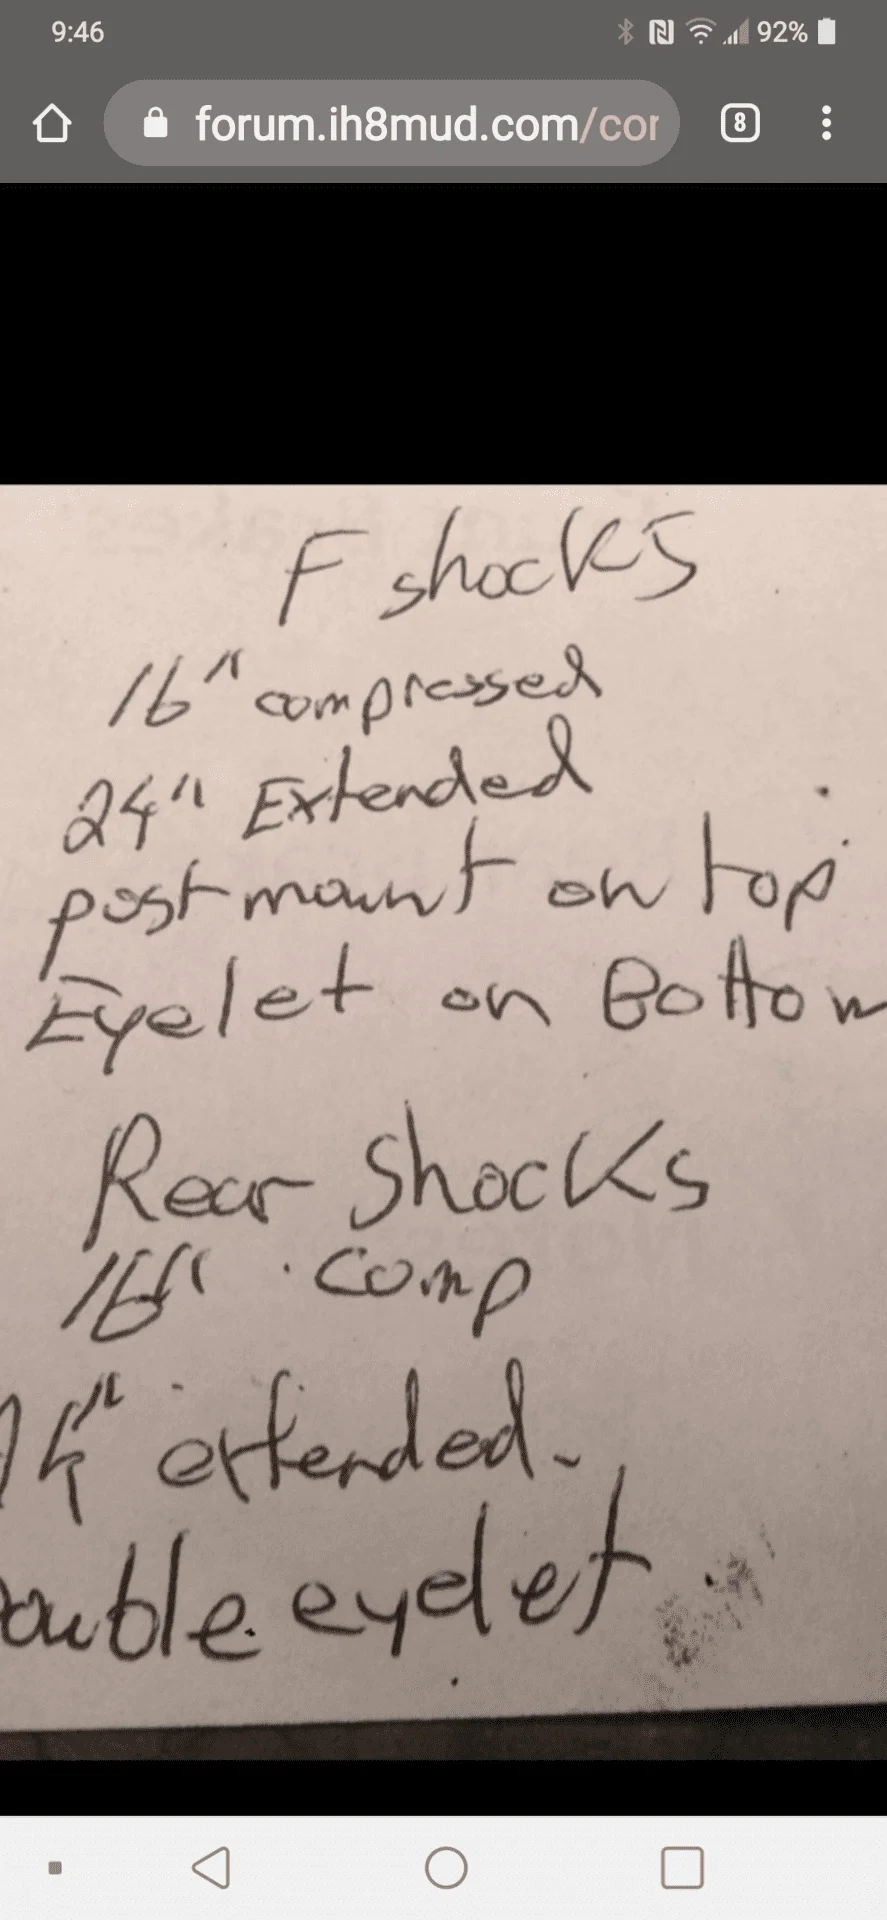 9:46
92%
forum.ih8mud.com/cor
8
F shocks
16" compressed
24" Extended
post mount on top
Eyelet on Bottom
Rear Shocks
16" comp
24" extended.
Double eyelet.